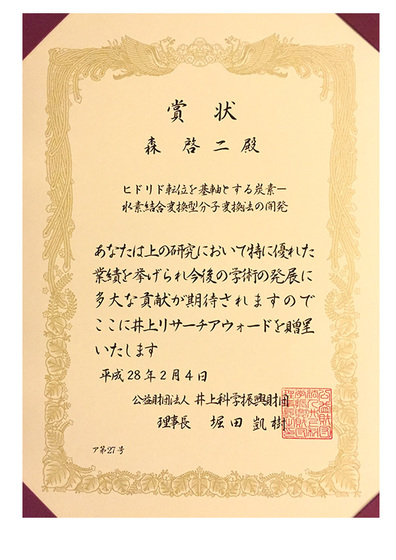 賞状
森啓二殿
ヒドリド転位を基軸とする炭素ー
水素結合変換型分子変換法の開発
あなたは上の研究において特に優れた
業績を挙げられ今後の学術の発展に
多大な貢献が期待されますので
ここに井上リサーチアウォードを贈呈
いたします
平成28年2月4日
公益財団法人 井上科学振興財団
理事長 堀田凱樹
ア第27号